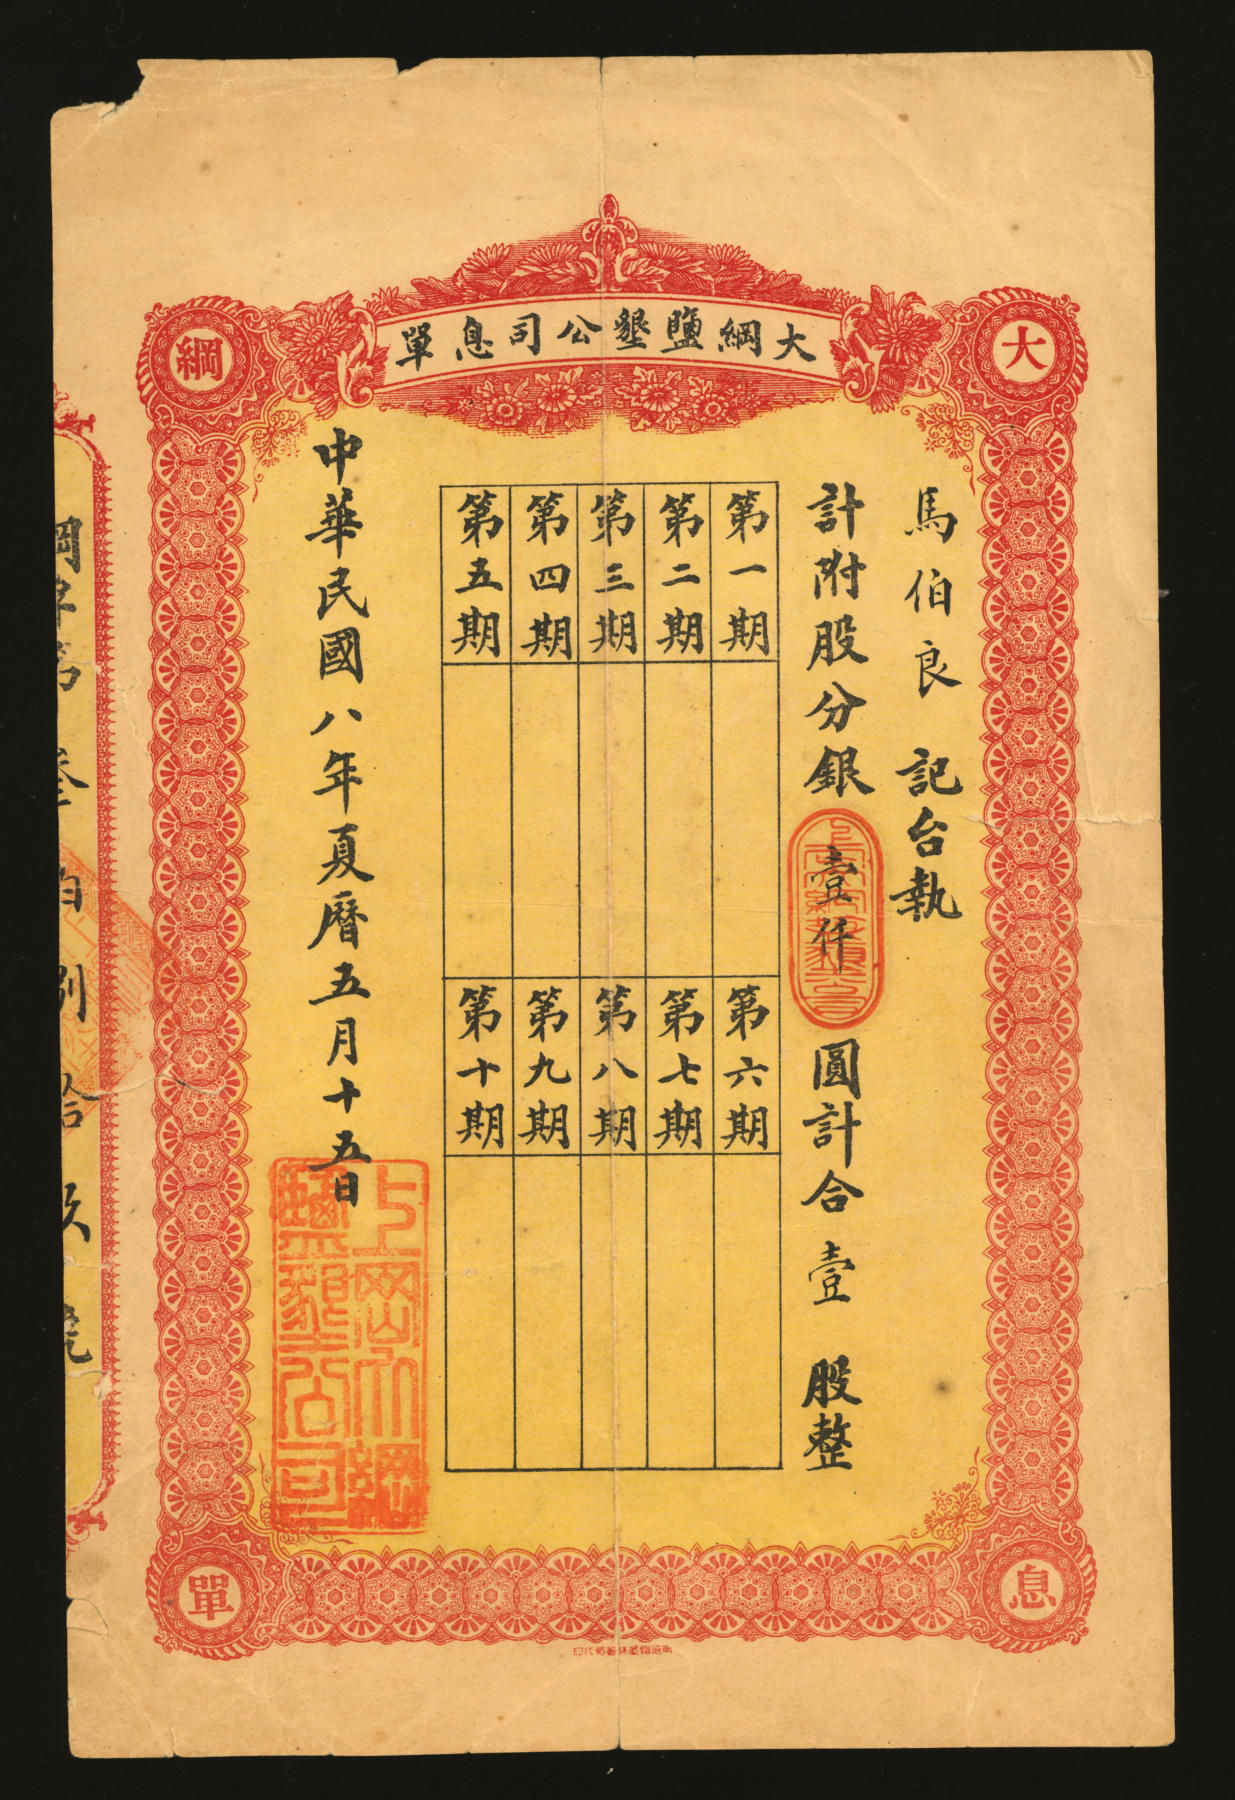 大綱鹽墾公司息單
大
綱
息
單
馬伯良 記台執
計附股分銀壹仟圓計合壹 股整
第一期
第二期
第三期
第四期
第五期
第六期
第七期
第八期
第九期
第十期
中華民國八年夏曆五月十五日
上岡大綱
鹽墾公司
綱字第 叁 百 捌 拾 玖 號